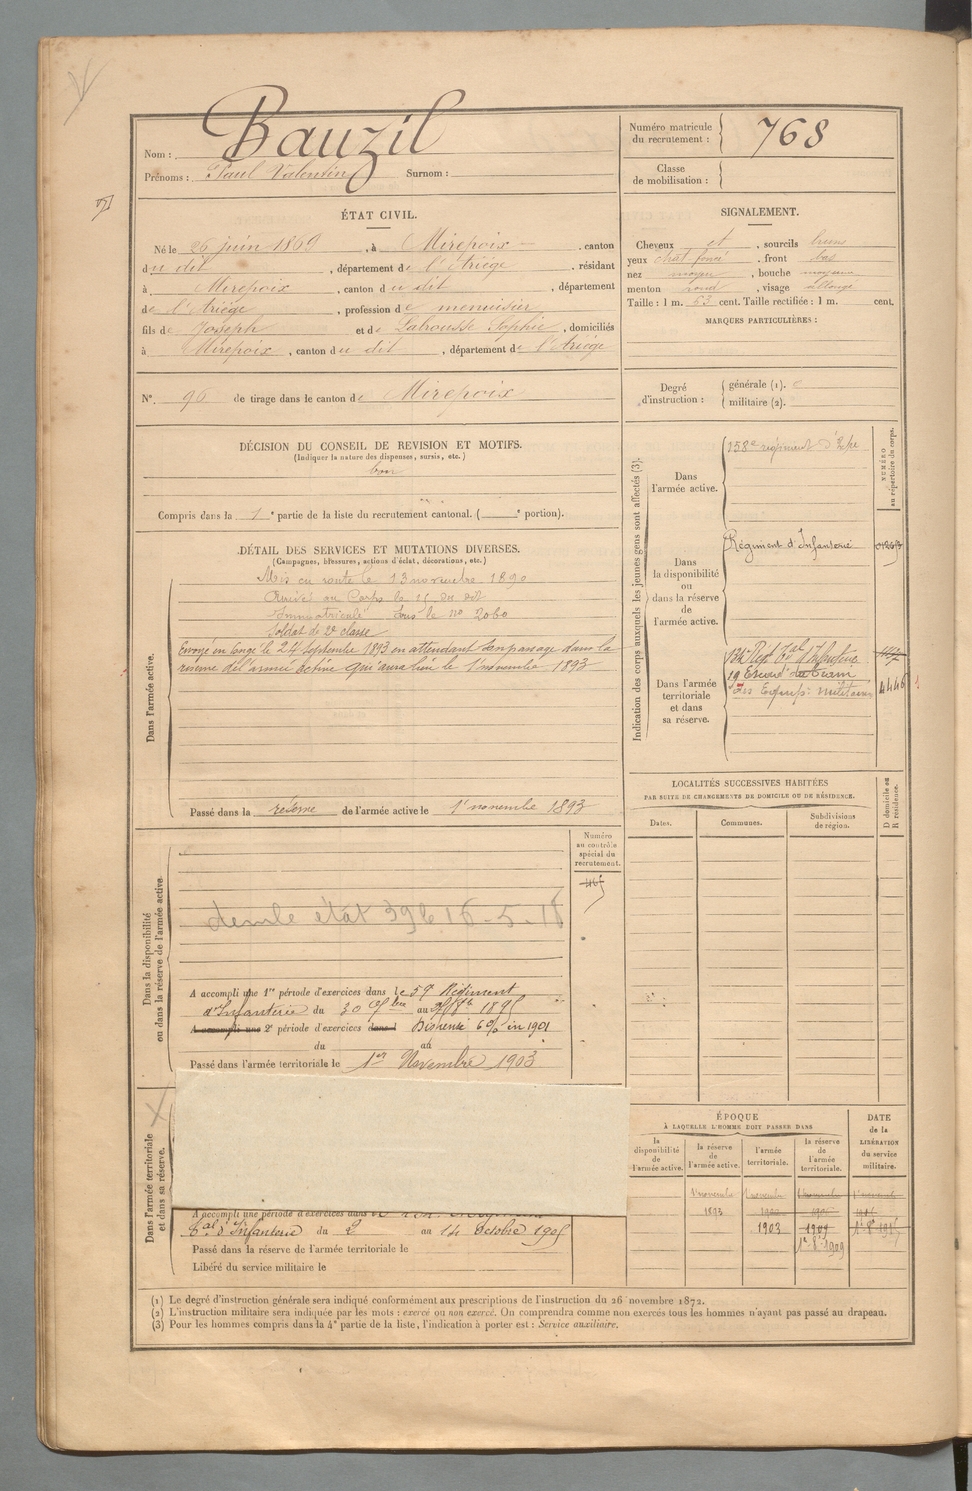 Bauzil
Nom :
Prénoms : Paul Valentin Surnom :
Numéro matricule du recrutement : 768
Classe de mobilisation :
ÉTAT CIVIL.
Né le 26 juin 1869, à Mirepoix, canton
du dit, département de l'Ariége, résidant
à Mirepoix, canton du dit, département
de l'Ariége, profession de menuisier
fils de Joseph et de Labrousse Sophie, domiciliés
à Mirepoix, canton du dit, département de l'Ariége
SIGNALEMENT.
Cheveux et, sourcils bruns
yeux chat. foncé, front bas
nez moyen, bouche moyenne
menton rond, visage allongé
Taille : 1 m. 63 cent. Taille rectifiée : 1 m. cent.
MARQUES PARTICULIÈRES :
N° 90 de tirage dans le canton de Mirepoix
Degré d'instruction : générale (1).
militaire (2).
DÉCISION DU CONSEIL DE REVISION ET MOTIFS.
(Indiquer la nature des dispenses, sursis, etc.)
bon
Compris dans la 1e partie de la liste du recrutement cantonal. ( e portion).
DÉTAIL DES SERVICES ET MUTATIONS DIVERSES.
(Campagnes, blessures, actions d'éclat, décorations, etc.)
Dans l'armée active.
Mis en route le 13 novembre 1890
Arrivé au Corps le 15 du dit
Immatriculé sous le no 2060
Soldat de 2e classe
Envoyé en congé le 24 septembre 1893 en attendant son passage dans la
réserve de l'armée active qui aura lieu le 1 novembre 1893
Passé dans la réserve de l'armée active le 1 novembre 1893
Indication des corps auxquels les jeunes gens sont affectés (3).
NUMÉRO au répertoire du corps.
Dans l'armée active.
158e régiment d'Infie
Dans la disponibilité ou dans la réserve de l'armée active.
Régiment d'Infanterie
Dans l'armée territoriale et dans sa réserve.
134e Regt tal d'Infanterie
19 Escad. du Train
des Equip. militaires
4446
LOCALITÉS SUCCESSIVES HABITÉES
PAR SUITE DE CHANGEMENTS DE DOMICILE OU DE RÉSIDENCE.
Dates. Communes. Subdivisions de région.
D domicile ou R résidence.
Dans la disponibilité ou dans la réserve de l'armée active
Numéro au contrôle spécial du recrutement.
état 396 16-5-18
A accompli une 1re période d'exercices dans le 59 Régiment
d'Infanterie du 30 7bre au 1895
A accompli une 2e période d'exercices dans l Dispensé 6% in 1901
du au
Passé dans l'armée territoriale le 1er Novembre 1903
Dans l'armée territoriale et dans sa réserve.
A accompli une période d'exercices dans
tal d'Infanterie du 2 au 14 octobre 1905
Passé dans la réserve de l'armée territoriale le
Libéré du service militaire le
ÉPOQUE
À LAQUELLE L'HOMME DOIT PASSER DANS
la disponibilité de l'armée active.
la réserve de l'armée active.
l'armée territoriale.
la réserve de l'armée territoriale.
DATE de la LIBÉRATION du service militaire.
1 novembre 1 novembre 1 novembre 1 novembre
1893
1903 1909
1er 8bre 1909
(1) Le degré d'instruction générale sera indiqué conformément aux prescriptions de l'instruction du 26 novembre 1872.
(2) L'instruction militaire sera indiquée par les mots : exercé ou non exercé. On comprendra comme non exercés tous les hommes n'ayant pas passé au drapeau.
(3) Pour les hommes compris dans la 4e partie de la liste, l'indication à porter est : Service auxiliaire.